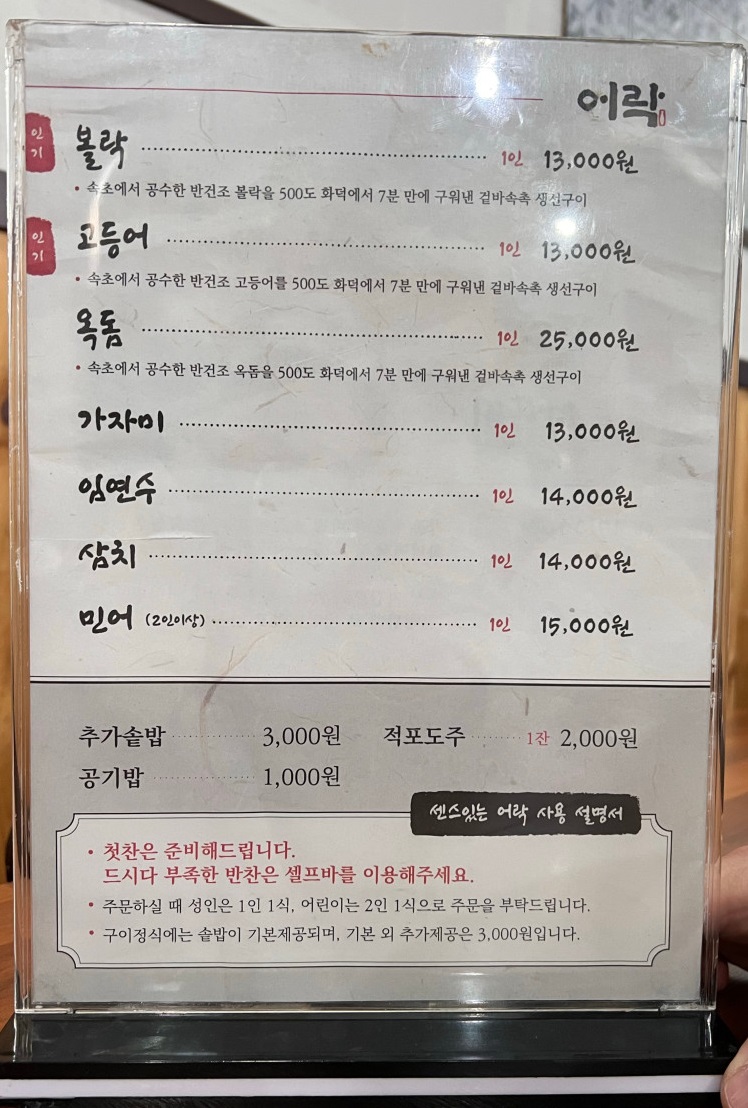 어락
인기
볼락 1인 13,000원
• 속초에서 공수한 반건조 볼락을 500도 화덕에서 7분 만에 구워낸 겉바속촉 생선구이
인기
고등어 1인 13,000원
• 속초에서 공수한 반건조 고등어를 500도 화덕에서 7분 만에 구워낸 겉바속촉 생선구이
옥돔 1인 25,000원
• 속초에서 공수한 반건조 옥돔을 500도 화덕에서 7분 만에 구워낸 겉바속촉 생선구이
가자미 1인 13,000원
임연수 1인 14,000원
삼치 1인 14,000원
민어 (2인이상) 1인 15,000원
추가솥밥 3,000원 적포도주 1잔 2,000원
공기밥 1,000원
센스있는 어락 사용 설명서
• 첫찬은 준비해드립니다.
드시다 부족한 반찬은 셀프바를 이용해주세요.
• 주문하실 때 성인은 1인 1식, 어린이는 2인 1식으로 주문을 부탁드립니다.
• 구이정식에는 솥밥이 기본제공되며, 기본 외 추가제공은 3,000원입니다.